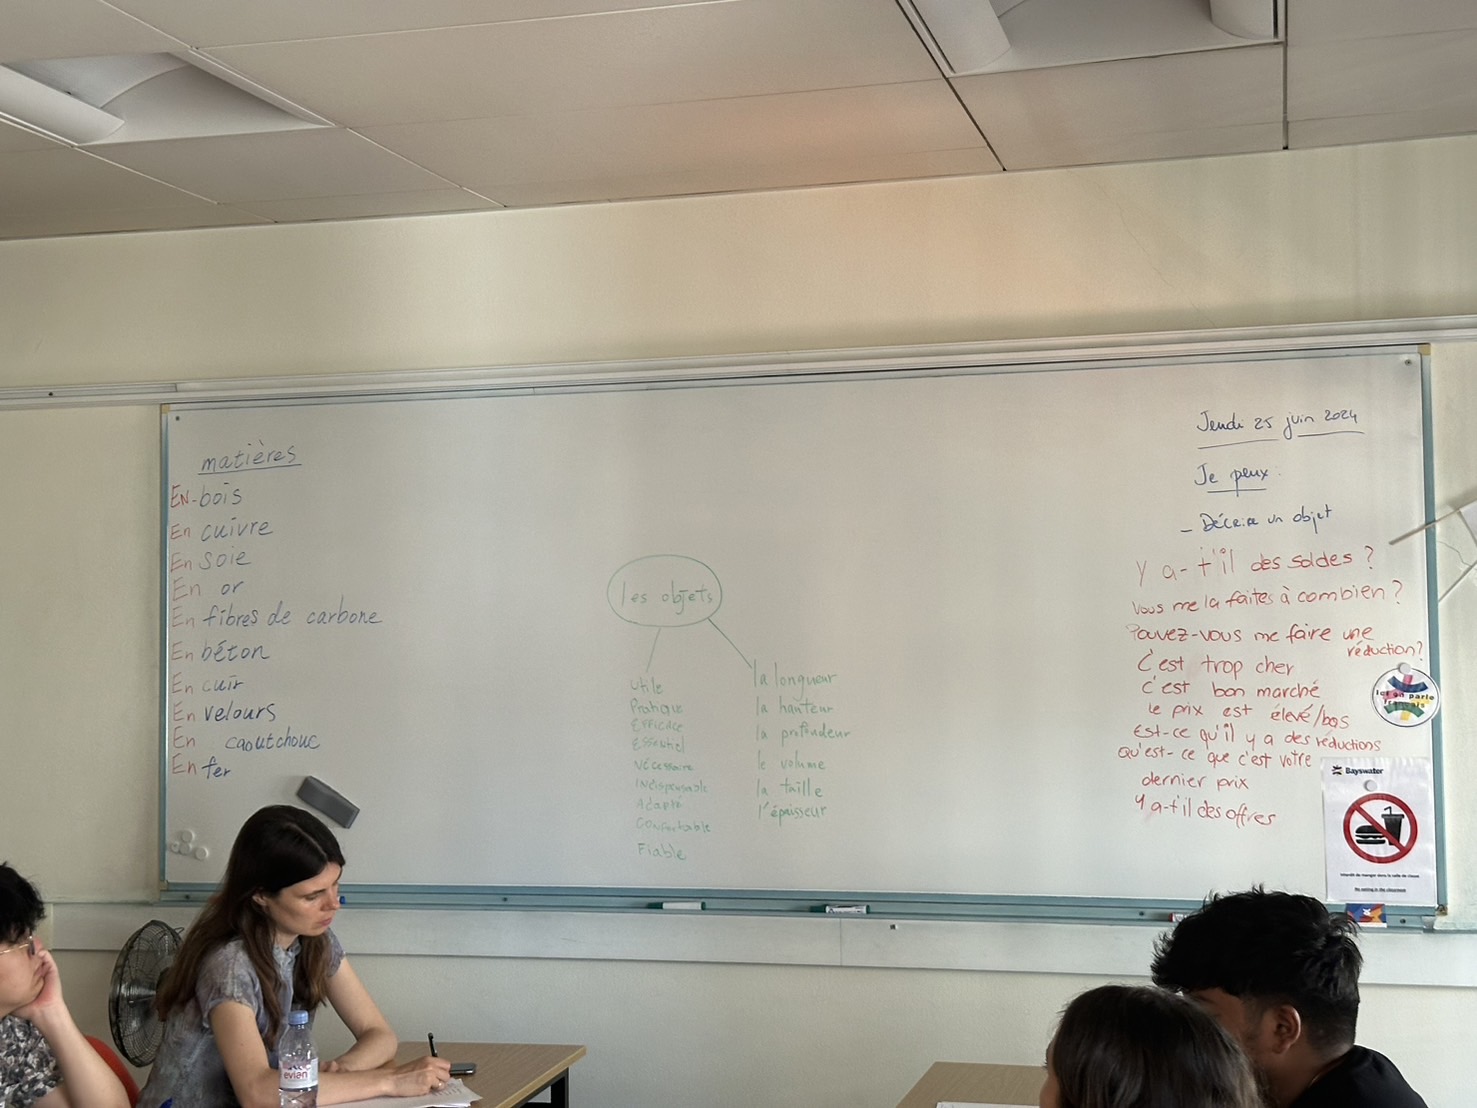 matières
EN-bois
En cuivre
En soie
En or
En fibres de carbone
En béton
En cuir
En velours
En caoutchouc
En fer
les objets
Utile
Pratique
Efficace
Essentiel
Nécessaire
Indispensable
Adapté
Confortable
Fiable
la longueur
la hauteur
la profondeur
le volume
la taille
l'épaisseur
Jeudi 25 juin 2024
Je peux:
- Décrire un objet
Y a-t'il des soldes ?
Vous me la faites à combien ?
Pouvez-vous me faire une
réduction?
C'est trop cher
c'est bon marché
le prix est élevé/bas
Est-ce qu'il y a des réductions
Qu'est-ce que c'est votre
dernier prix
Y a-t'il des offres
Ici on parle
français
Bayswater
Interdit de manger dans la salle de classe
No eating in the classroom
evian